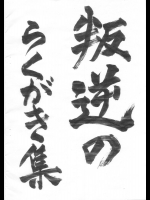 叛逆の
らくがき集